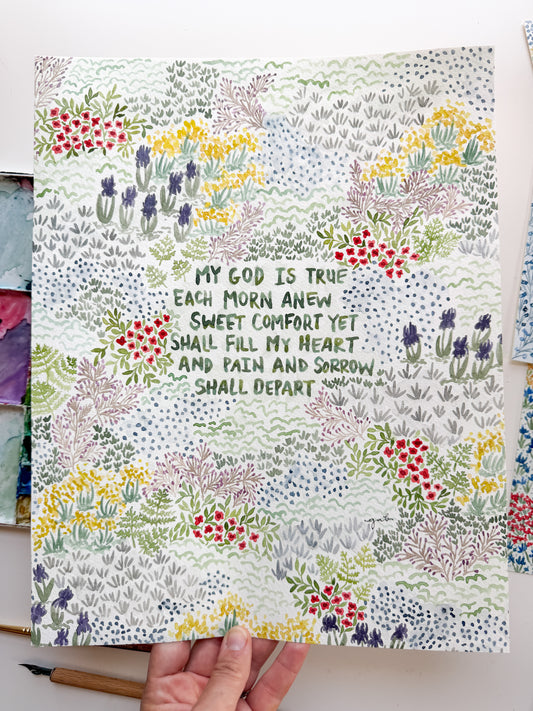 MY GOD IS TRUE
EACH MORN ANEW
SWEET COMFORT YET
SHALL FILL MY HEART
AND PAIN AND SORROW
SHALL DEPART